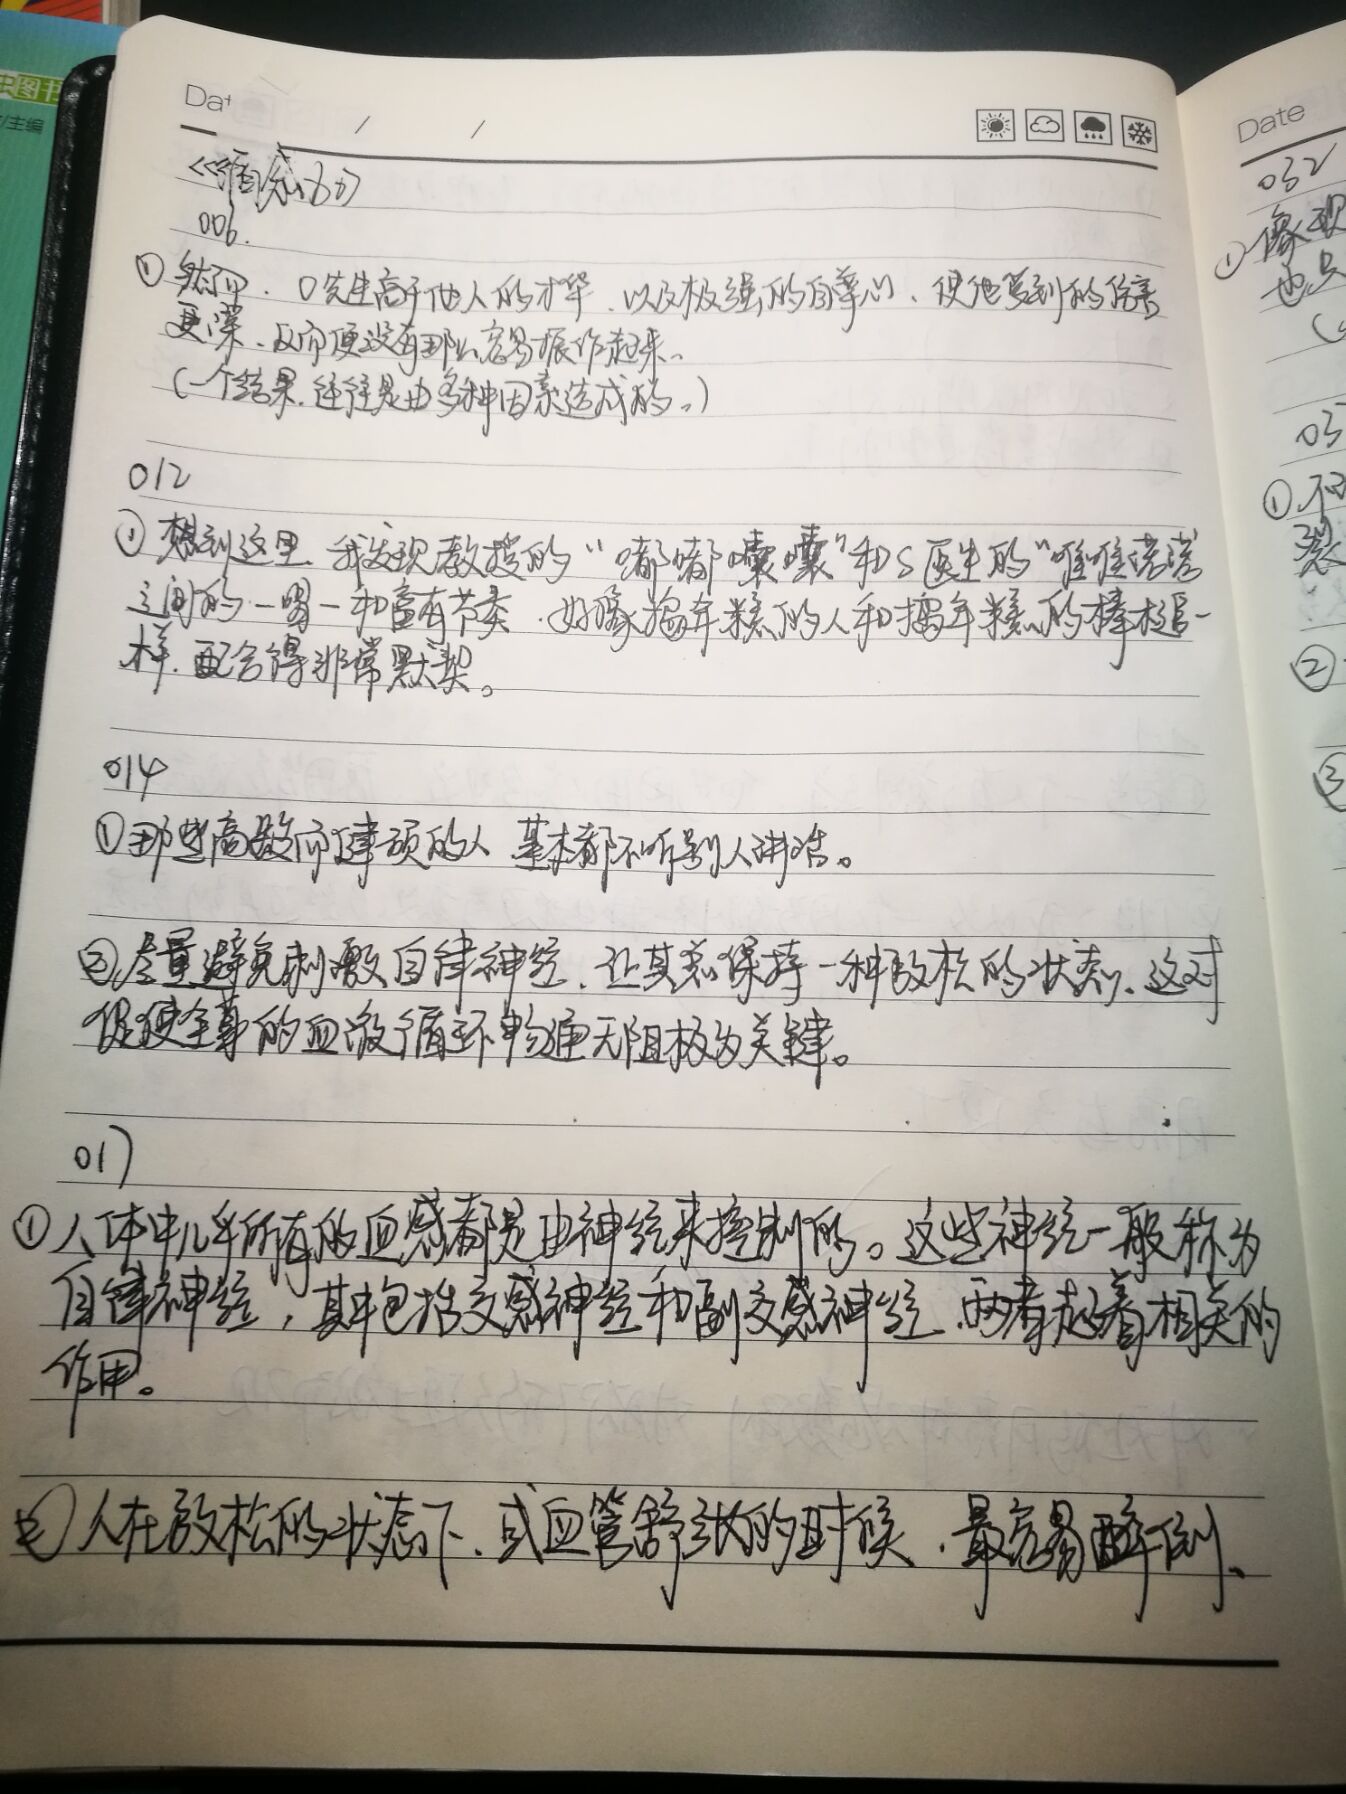 虫图书
/主编
Dat
/ /
《钝感力》
006.
① 然而、O先生高于他人的才华、以及极强的自尊心、使他受到的伤害
更深、反而便没有那么容易振作起来。
(一个结果、往往是由多种因素造成的。)
012
① 想到这里、我发现教授的“嘟嘟囔囔”和S医生的“唯唯诺诺
之间的一唱一和富有节奏、好像捣年糕的人和捣年糕的棒槌一
样、配合得非常默契。
014
① 那些高龄而健硕的人 基本都不听别人讲话。
② 尽量避免刺激自律神经、让其总保持一种放松的状态、这对
促使全身的血液循环畅通无阻极为关键。
017
① 人体中几乎所有的血感都是由神经来控制的。这些神经一般称为
自律神经，其中包括交感神经和副交感神经、两者起着相关的
作用。
② 人在放松的状态下、或血管舒张的时候、最容易醉倒、
Date
032
① 像现
也只
03
① 不
裂
②
③